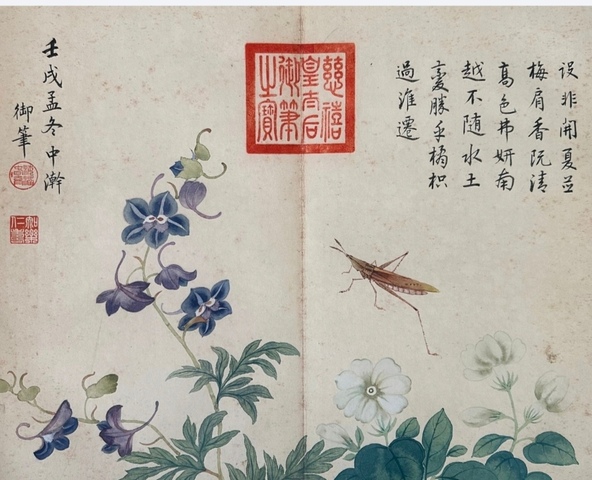 設非開夏並
梅肩香既清
高色弗妍南
越不隨水土
變勝乎橘枳
過淮遷
慈禧
皇太后
御筆
之寶
壬戌孟冬中澣
御筆